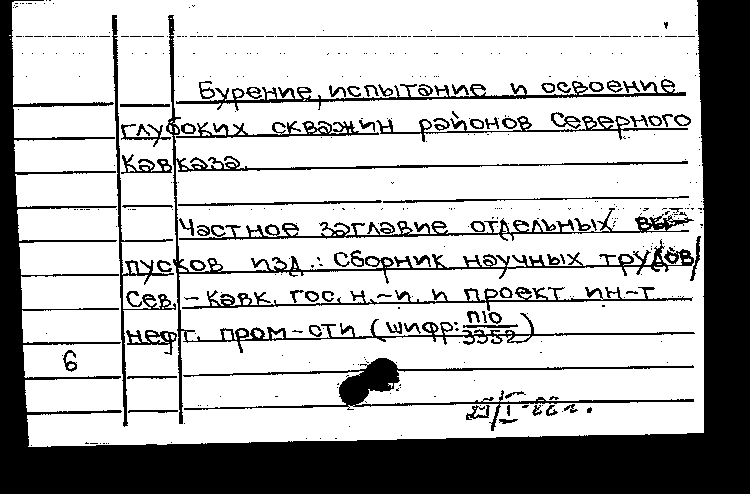 Бурение, испытание и освоение
глубоких скважин районов Северного
Кавказа.
Частное заглавие отдельных вы-
пусков изд.: Сборник научных трудов/
Сев.-Кавк. гос. н.-и. и проект. ин-т
нефт. пром-сти (шифр: П10/3352)
6